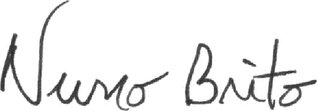 Nuno Brito